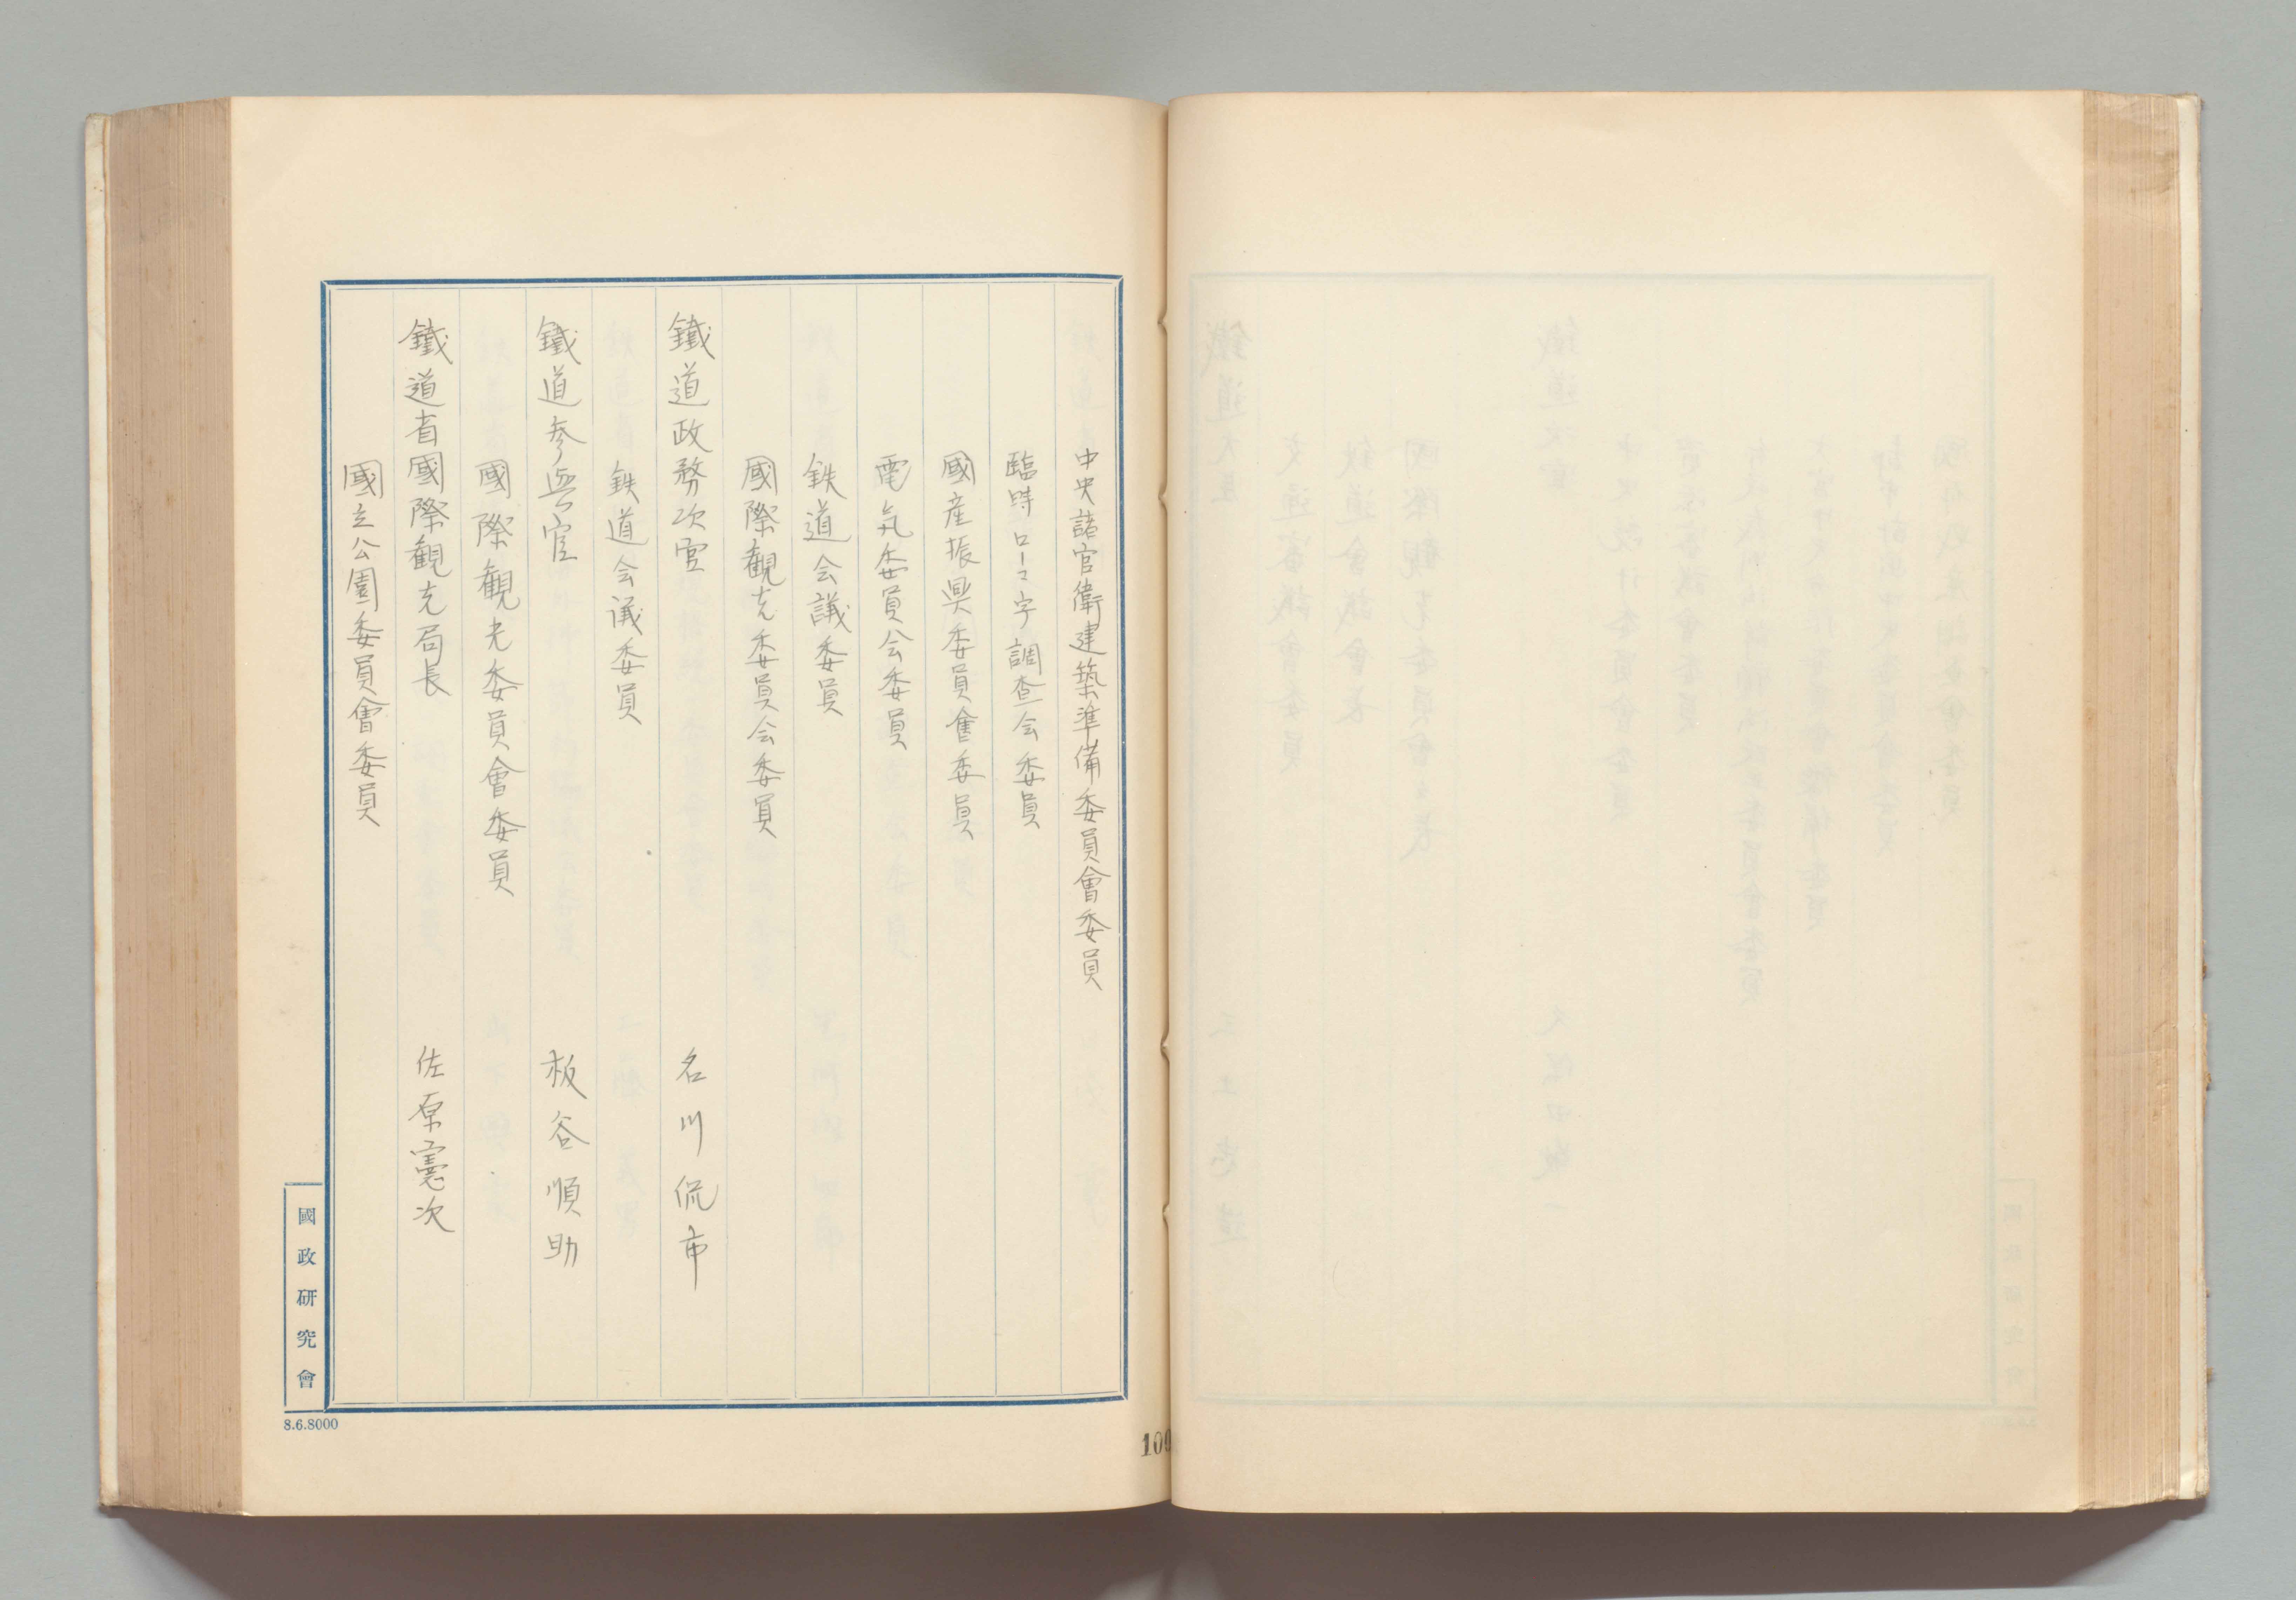 中央諸官衙建築準備委員會委員
臨時ローマ字調査会委員
國産振興委員會委員
電気委員会委員
鉄道会議委員
國際観光委員会委員
鐵道政務次官 名川侃市
鉄道会議委員
鐵道参與官 板谷順助
國際観光委員會委員
鐵道省國際観光局長 佐原憲次
國立公園委員會委員
國政研究會
8.6.8000
100